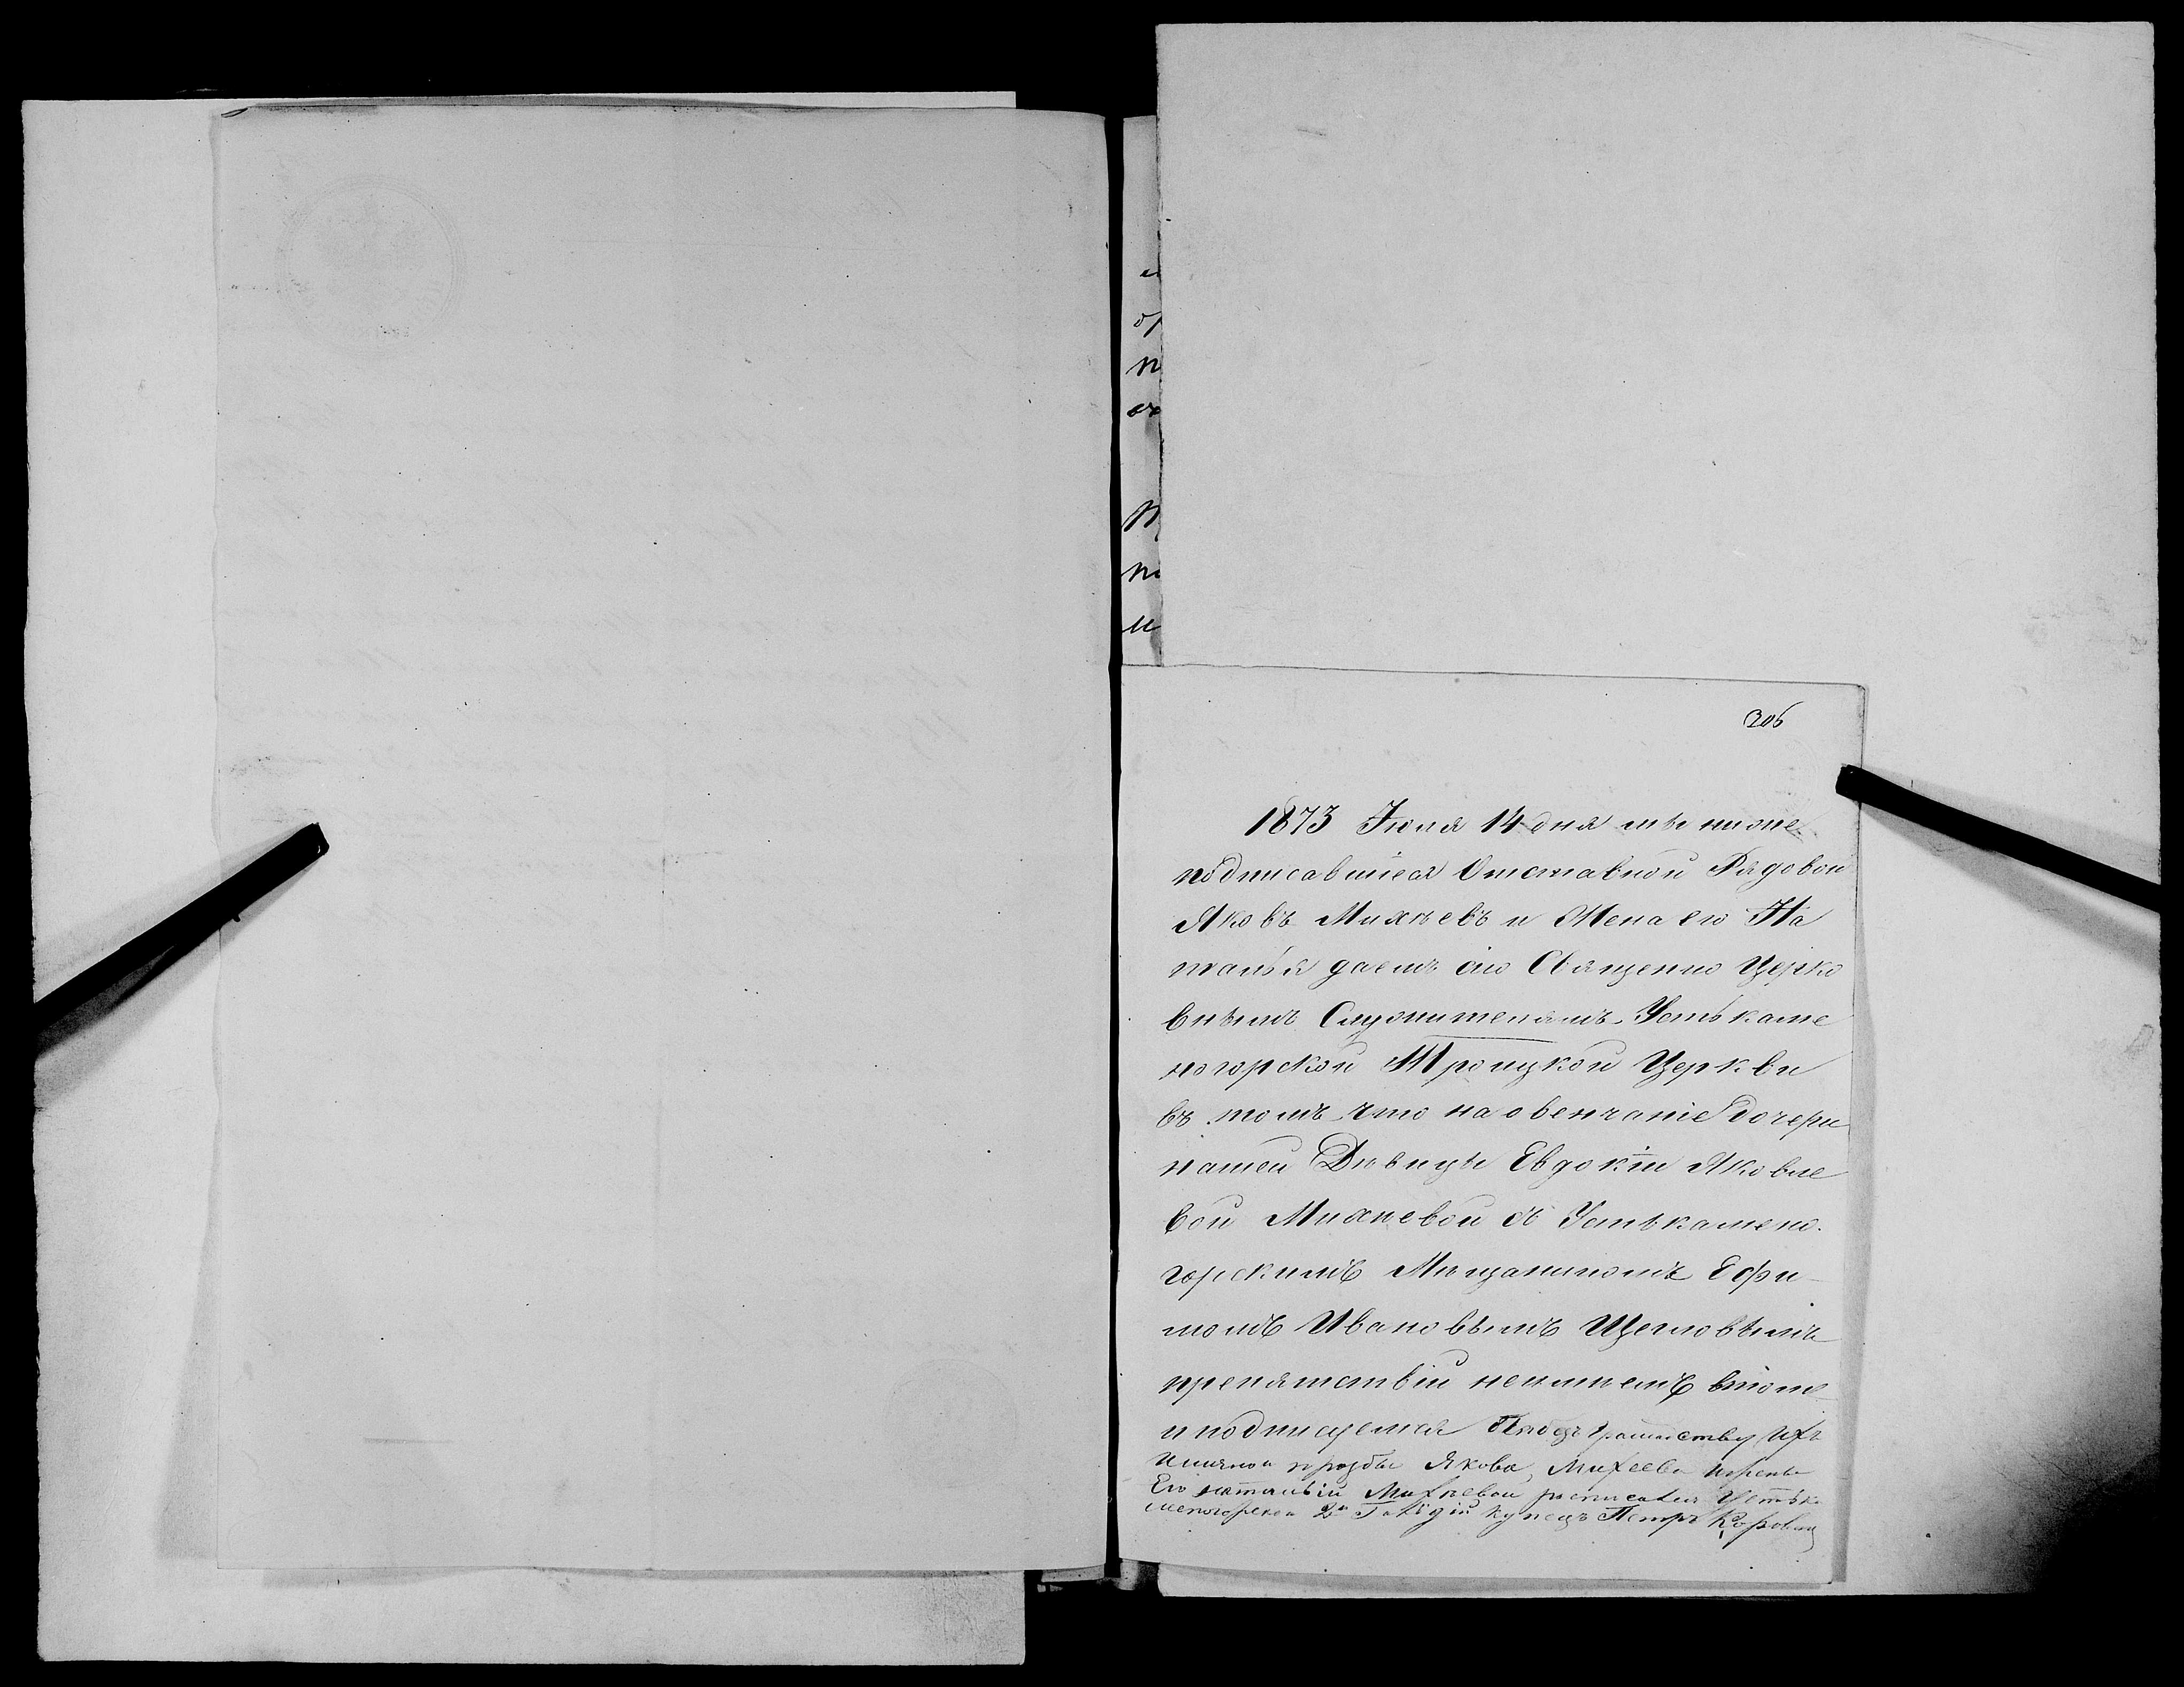 206
1873 Июля 14 дня мы ниже
подписавшiеся Отставной Рядовой
Яковъ Михѣевъ и Жена его На
талья даемъ сiю Священно Церко
внымъ Служителямъ Усть каме
ногорской Троицкой Церкви
въ томъ что на овенчанiе дочери
нашей Дѣвицы Евдокiи Яковле
вой Михѣевой съ Устькамено
горскимъ Мѣщаниномъ Ефи
момъ Ивановымъ Щегловымъ
препятствiй неимѣемъ втомъ
и подписуемся грамоству Ихъ
Личной прозбы Якова Михеева и жены
Его наталiи Михѣевой росписался Устька
меногорской 2й Гилдiи купецъ Петръ